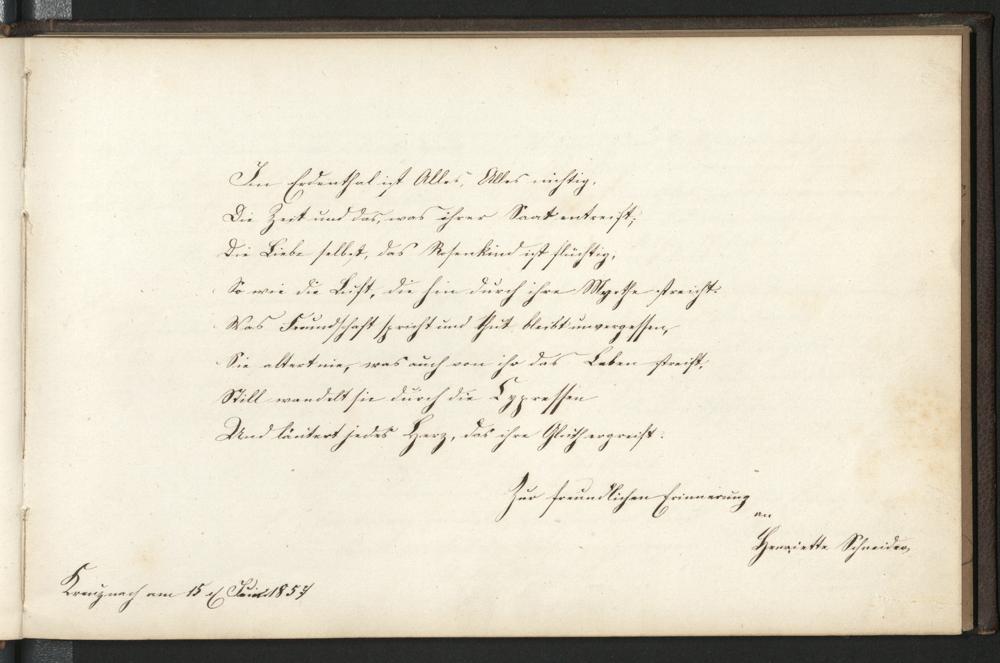 Im Erdenthal ist Alles, Alles nichtig,
Die Zeit und das, was ihrer Saat entreift;
Die Liebe selbst, das Rosenkind ist flüchtig,
So wie die Luft, die hin durch ihre Myrthe streicht.
Was Freundschaft spricht und thut bleibt unvergessen,
Sie altert nie, was auch von ihr das Leben streift,
Still wandelt sie durch die Cypressen
Und läutert jedes Herz, das ihre Gluth ergreift.
Zur freundlichen Erinnerung
an
Henriette Schneider,
Kreuznach am 15 1857